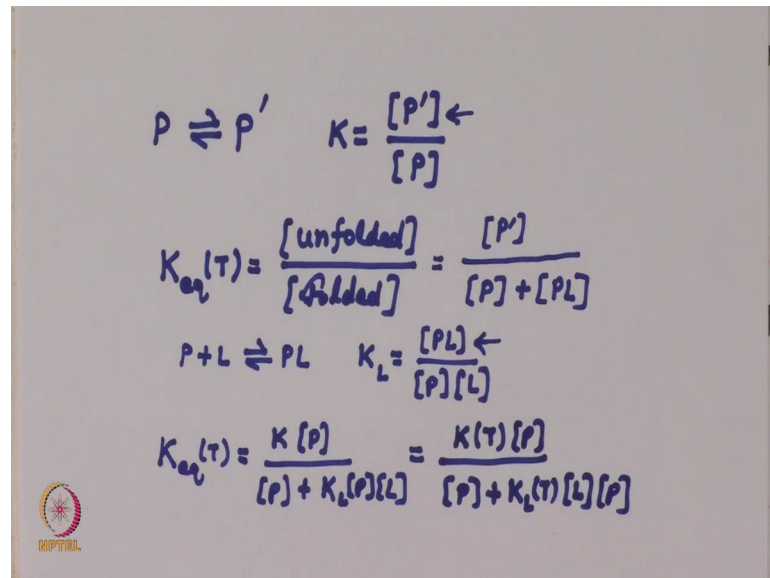 P ⇌ P' K = [P'] ← / [P]
K_eq(T) = [unfolded] / [folded] = [P'] / [P] + [PL]
P + L ⇌ PL K_L = [PL] ← / [P][L]
K_eq(T) = K[P] / [P] + K_L[P][L] = K(T)[P] / [P] + K_L(T)[L][P]
NPTEL